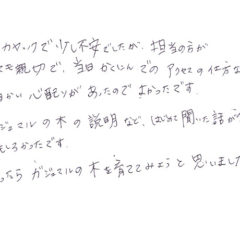 カヤックで少し不安でしたが、担当の方が
も親切で、当日かくにんでのアクセスの仕方な
かい心配りがあったのでよかったです。
ジュマルの木の説明など、はじめて聞いた話が
もしろかったです。
ったらガジュマルの木を育ててみようと思いました